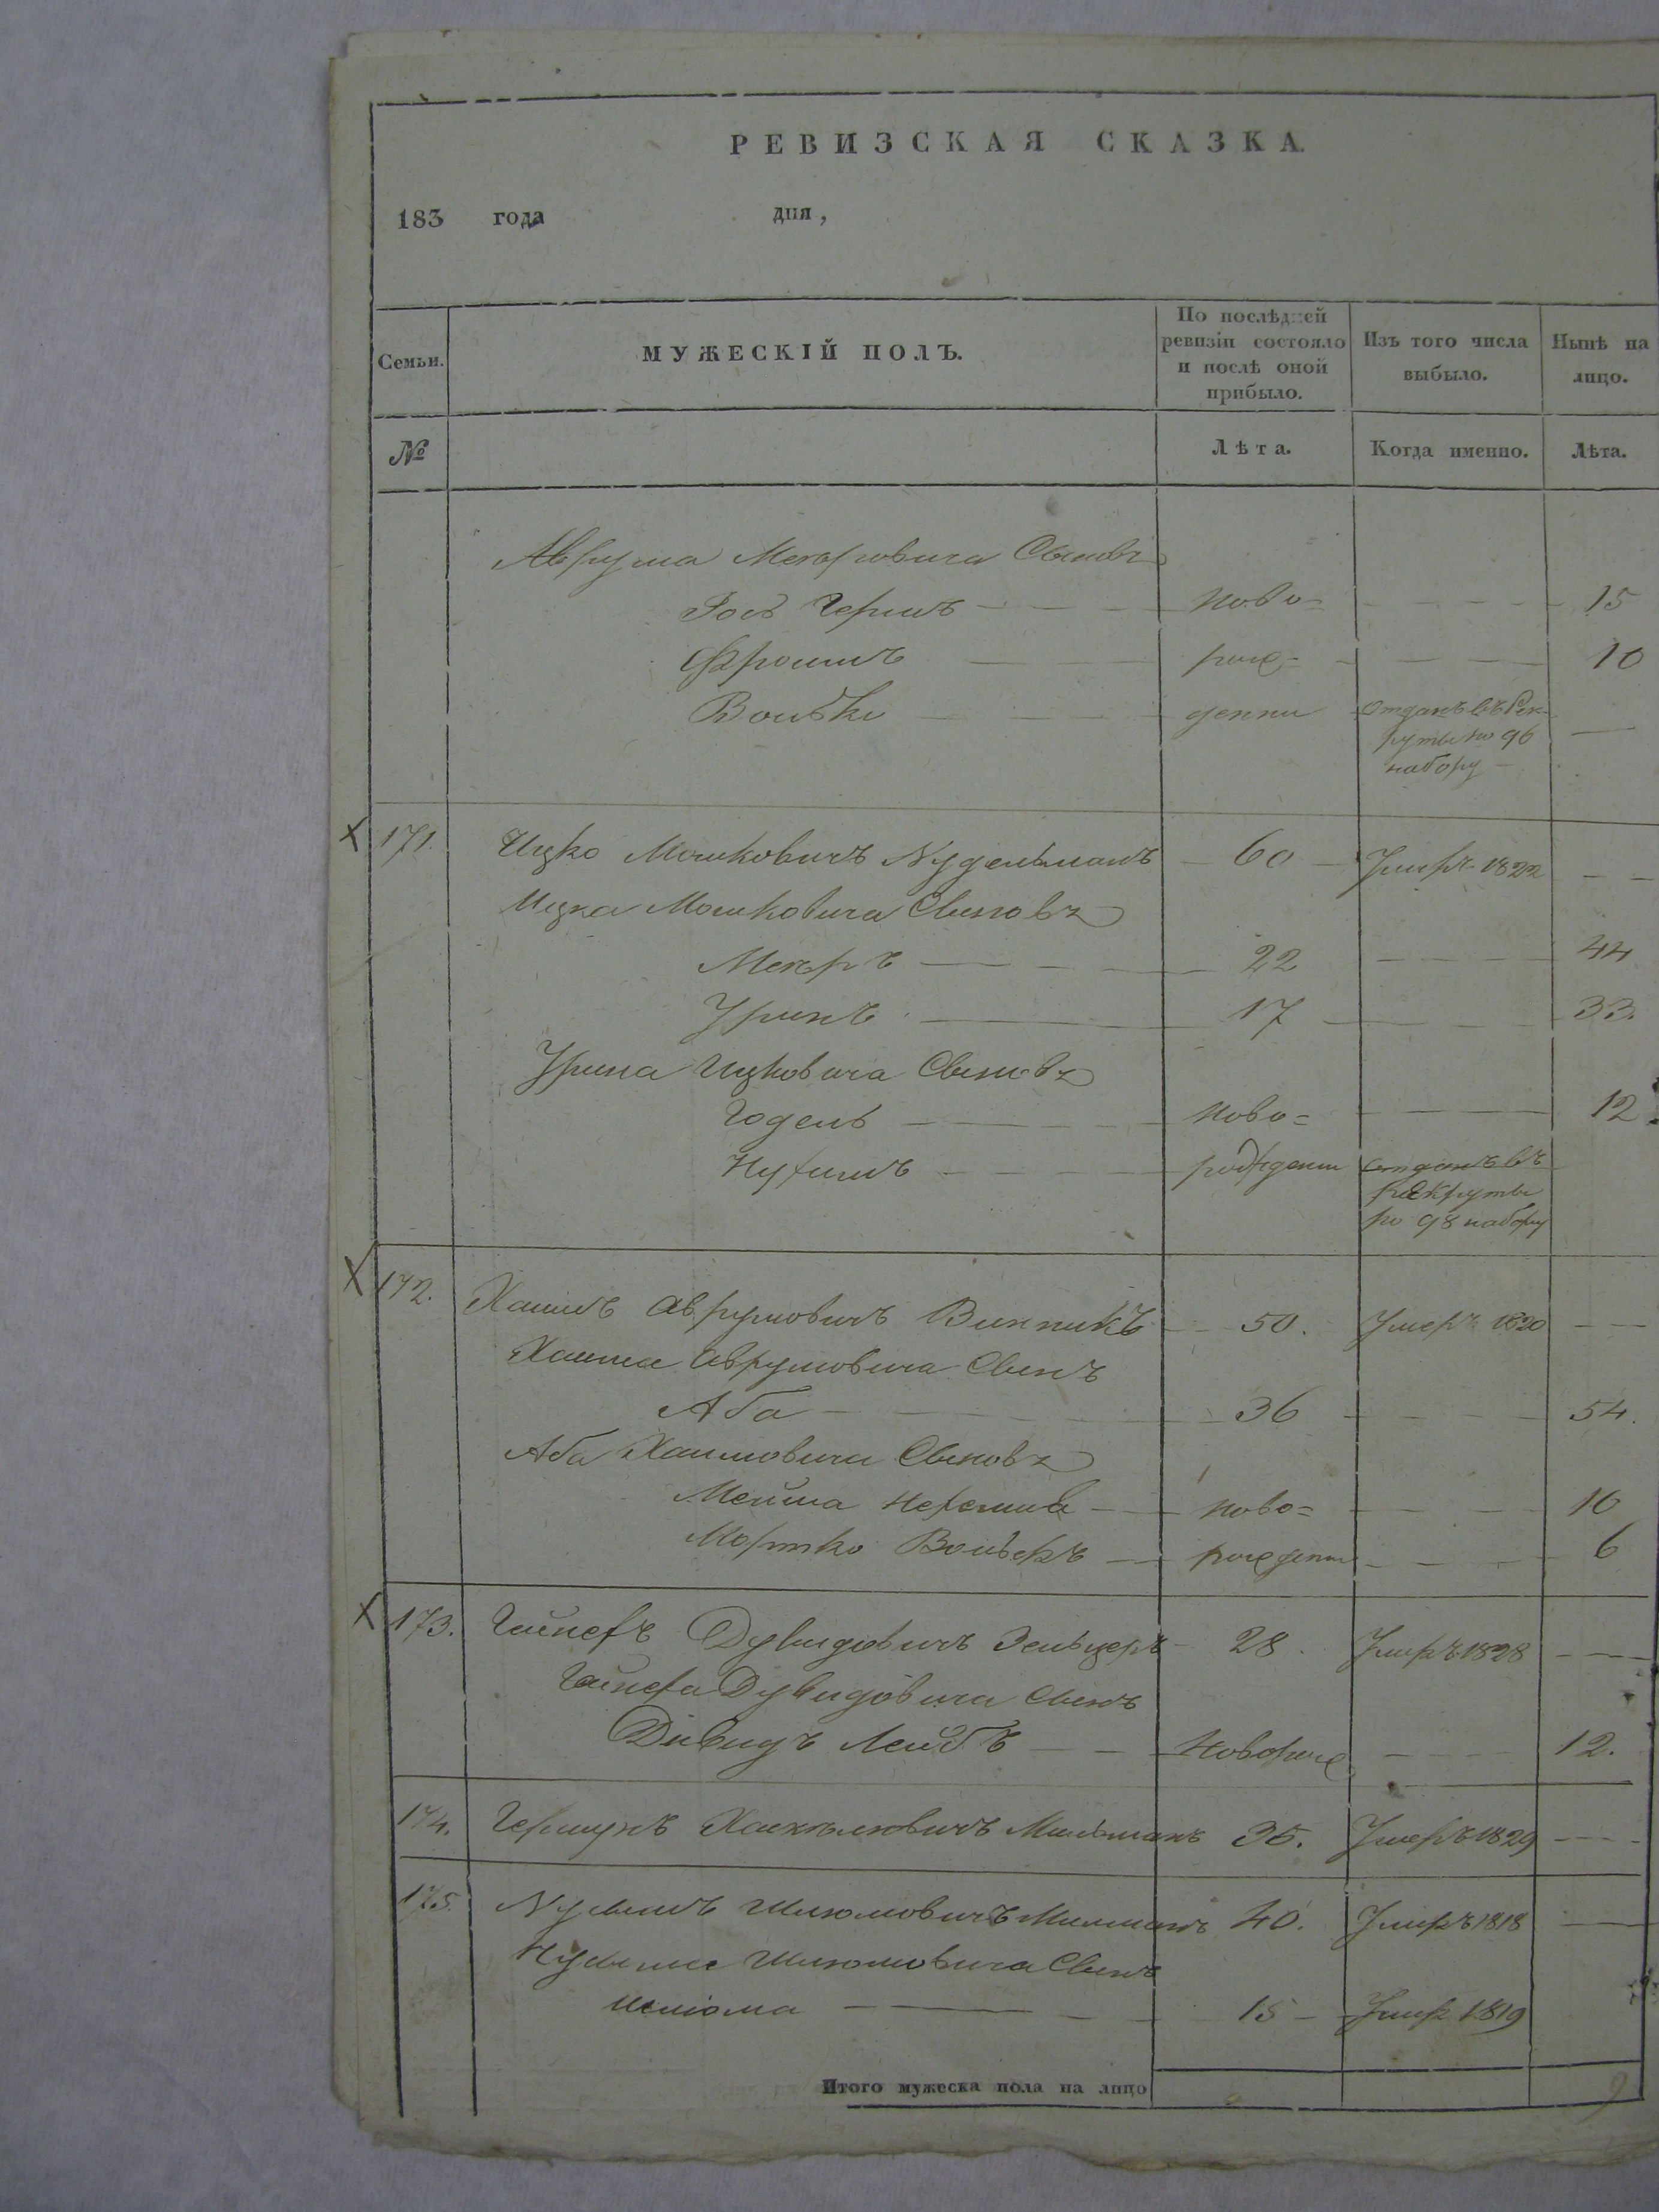 РЕВИЗСКАЯ СКАЗКА.
183 года дня,
Семьи. МУЖЕСКІЙ ПОЛЪ. По послѣдней ревизіи состояло и послѣ оной прибыло. Изъ того числа выбыло. Нынѣ на лицо.
№ Лѣта. Когда именно. Лѣта.
Аврума Мееровича Сыновья
Гершъ ново= 15
Фроимъ рож- 10
Волько денни отданъ въ Рек-
руты по 96
набору
171. Ицко Мошковичъ Нудельманъ 60 Умеръ 1822
Ицка Мошковича Сыновья
Мееръ 22 44
Уринъ 17 33.
Урина Ицковича Сыновья
Годель ново= 12
Нухимъ рожденни отданъ въ
рекруты
по 98 набору
172. Хаимъ Аврумовичъ Винникъ 50. Умеръ 1820
Хаима Аврумовича Сынъ
Аба 36 54.
Аба Хаимовича Сыновья
ново= 10
Мортко Вольфъ рожденни 6
173. Дувидовичъ Зельцеръ 28. Умеръ 1828
Дувидовича Сынъ
Дувидъ Лейбъ Новорож 12.
174. Гершунъ Мильманъ 35. Умеръ 1829
175. Нухимъ Шлюмовичъ Мильманъ 40. Умеръ 1818
Нухима Шлюмовича Сынъ
Шліома 15 Умеръ 1819
Итого мужеска пола на лицо 9